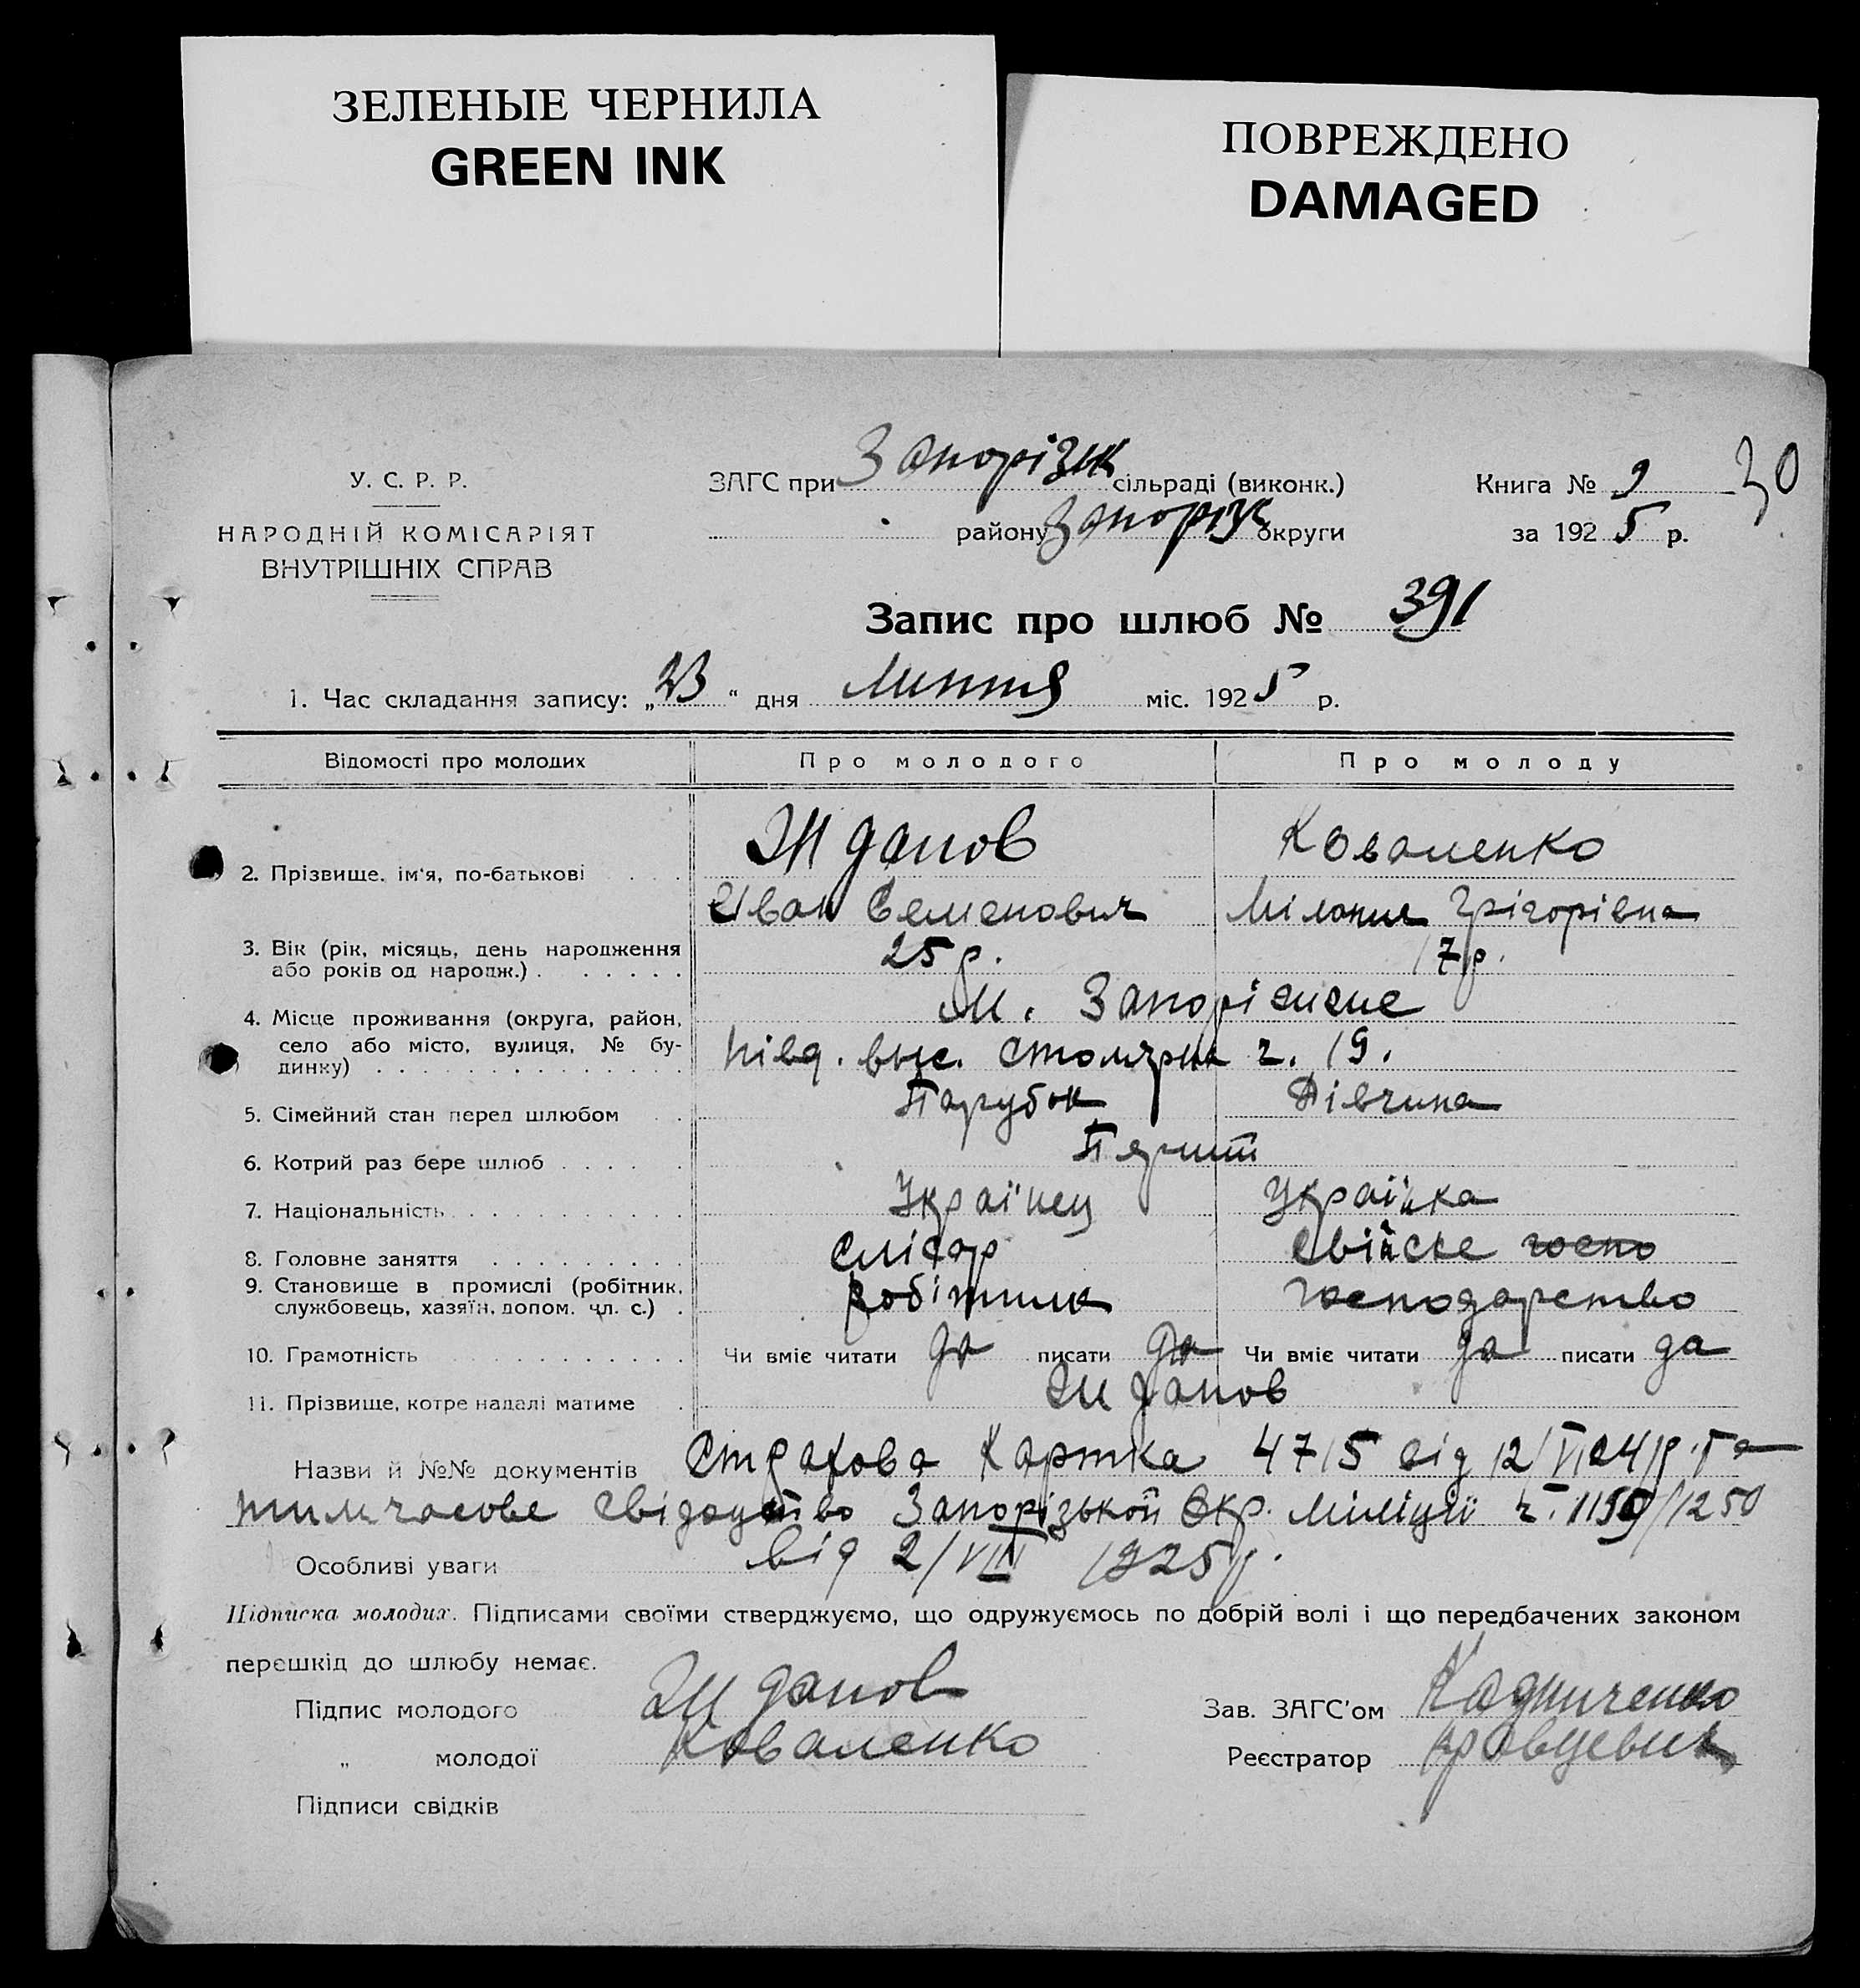 ЗЕЛЕНЫЕ ЧЕРНИЛА
GREEN INK
ПОВРЕЖДЕНО
DAMAGED
30
У. С. Р. Р.
НАРОДНІЙ КОМІСАРІЯТ
ВНУТРІШНІХ СПРАВ
ЗАГС при Запорізьк сільраді (виконк.)
району Запоріз округи
Книга № 9
за 1925 р.
Запис про шлюб № 391
1. Час складання запису: „23“ дня Липня міс. 1925 р.
Відомості про молодих Про молодого Про молоду
2. Прізвище, ім'я, по-батькові . . . Жданов Коваленко
Иван Семенович Міланія Грігорівна
3. Вік (рік, місяць, день народження 25 р. 17 р.
або років од народж.) . . . . . .
4. Місце проживання (округа, район, М. Запоріжже
село або місто, вулиця, № бу- Півд. выс. Столярна ч. 19.
динку) . . . . . . . . . . . . . .
5. Сімейний стан перед шлюбом . . Парубок Дівчина
6. Котрий раз бере шлюб . . . . . Перший
7. Національність . . . . . . . . . . Українец Українка
8. Головне заняття . . . . . . . . . Слісар Свійске госпо
9. Становище в промислі (робітник, Робітник Господарство
службовець, хазяїн, допом. чл. с.) .
10. Грамотність . . . . . . . . . . . Чи вміє читати да писати да Чи вміє читати да писати да
11. Прізвище, котре надалі матиме . Жданов
Назви й №№ документів Страхова Картка 4715 від 12/VI 24 р. Та
тимчасове свідоцтво Запорізькой Окр. Міліціі ч. 1159/1250
Особливі уваги від 2/VIII 1925 р.
Підписка молодих. Підписами своїми стверджуємо, що одружуємось по добрій волі і що передбачених законом
перешкід до шлюбу немає.
Підпис молодого Жданов Зав. ЗАГС'ом
„ молодої Коваленко Реєстратор Кравцевич
Підписи свідків